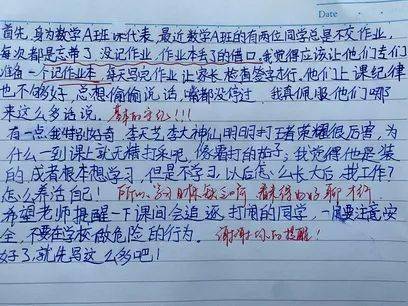 Date
首先,身为数学A班课代表,最近数学A班的有两位同学总是不交作业,
每次都是忘带了,没记作业,作业本丢了的借口,我觉得应该让他们专门
准备一个记作业本,每天写完作业让家长检查签字才行,他们上课纪律
也不够好,总想偷偷说话,嘴都没停过,我真佩服他们哪
来这么多话说,基本的守纪!!!
有一点我特别好奇,李天艺,李大神仙明明打王者荣耀很厉害,为
什么一到课上就无精打采呢,像霜打的茄子;我觉得他是装
的,或者根本想学习,但是不学习,以后怎么长大后,找工作?
怎么养活自己!所以,家明 看来得好好聊才行.
希望老师提醒一下课间会追逐打闹的同学,一定要注意安
全,不要在学校做危险的行为.谢谢你的提醒!
好了,就先写这么多吧!